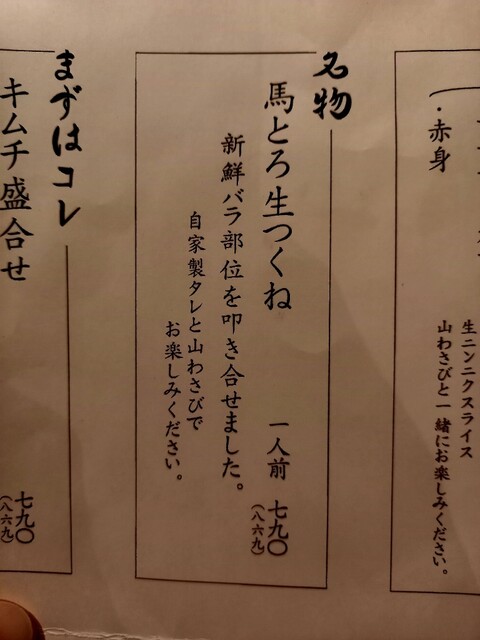 ・赤身
生ニンニクスライス
山わさびと一緒にお楽しみください。
名物
馬とろ生つくね 一人前 七九〇
(八六九)
新鮮バラ部位を叩き合せました。
自家製タレと山わさびで
お楽しみください。
まずはコレ
キムチ盛合せ 七九〇
(八六九)